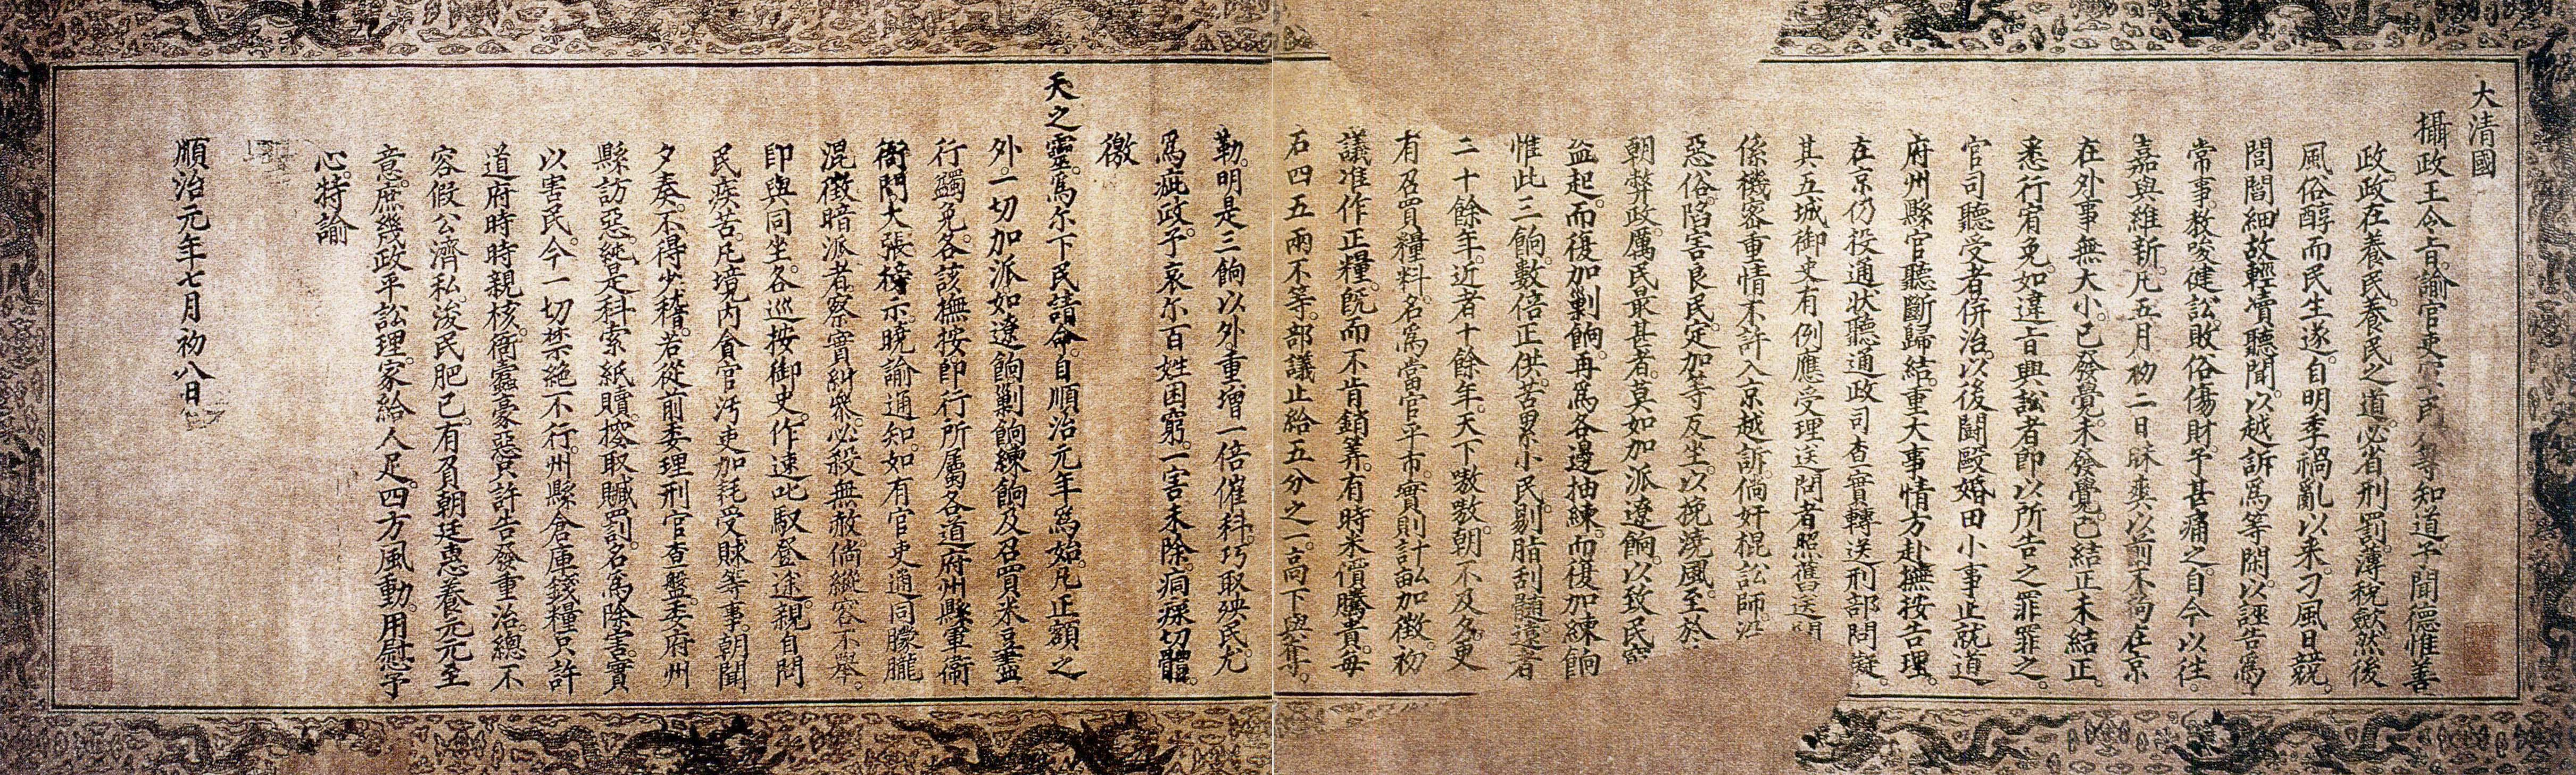 大清國
攝政王令旨諭官吏軍民人等知道予聞德惟善
政政在養民養民之道必省刑罰薄稅斂然後
風俗醇而民生遂自明季禍亂以來刁風日競
閭閻細故輕瀆聽聞以越訴爲等閑以誣告爲
常事教唆健訟敗俗傷財予甚痛之自今以往
嘉與維新凡五月初二日昧爽以前不拘在京
在外事無大小已發覺未發覺已結正未結正
悉行宥免如違旨興訟者即以所告之罪罪之
官司聽受者併治以後鬪毆婚田小事止就道
府州縣官聽斷歸結重大事情方赴撫按告理
在京仍投通狀聽通政司查實轉送刑部問擬
其五城御史有例應受理送問者照舊送問
係機密重情不許入京越訴倘奸棍訟師
惡俗陷害良民定加等反坐以挽澆風至於
朝弊政厲民最甚者莫如加派遼餉以致民窮
盜起而復加剿餉再爲各邊抽練而復加練餉
惟此三餉數倍正供苦累小民剔脂刮髓遠者
二十餘年近者十餘年天下嗷嗷朝不及夕更
有召買糧料名爲當官平市實則計畝加徵初
議准作正糧既而不肯銷筭有時米價騰貴每
石四五兩不等部議止給五分之一高下與奪
勒明是三餉以外重增一倍催科巧取殃民尤
爲疵政予哀尔百姓困窮一害未除痌瘝切體
徼
天之靈爲尔下民請命自順治元年爲始凡正額之
外一切加派如遼餉剿餉練餉及召買米豆盡
行蠲免各該撫按即行所屬各道府州縣軍衛
衙門大張榜示曉諭通知如有官吏通同朦朧
混徵暗派者察實糾參必殺無赦倘縱容不舉
即與同坐各巡按御史作速叱馭登途親自問
民疾苦凡境內貪官汚吏加耗受賕等事朝聞
夕奏不得少稽若從前委理刑官查盤委府州
縣訪惡縂是科索紙贖搜取贓罰名爲除害實
以害民今一切禁絕不行州縣倉庫錢糧只許
道府時時親核衙蠹豪惡只許告發重治總不
容假公濟私浚民肥己有負朝廷惠養元元至
意庶幾政平訟理家給人足四方風動用慰予
心特諭
順治元年七月初八日